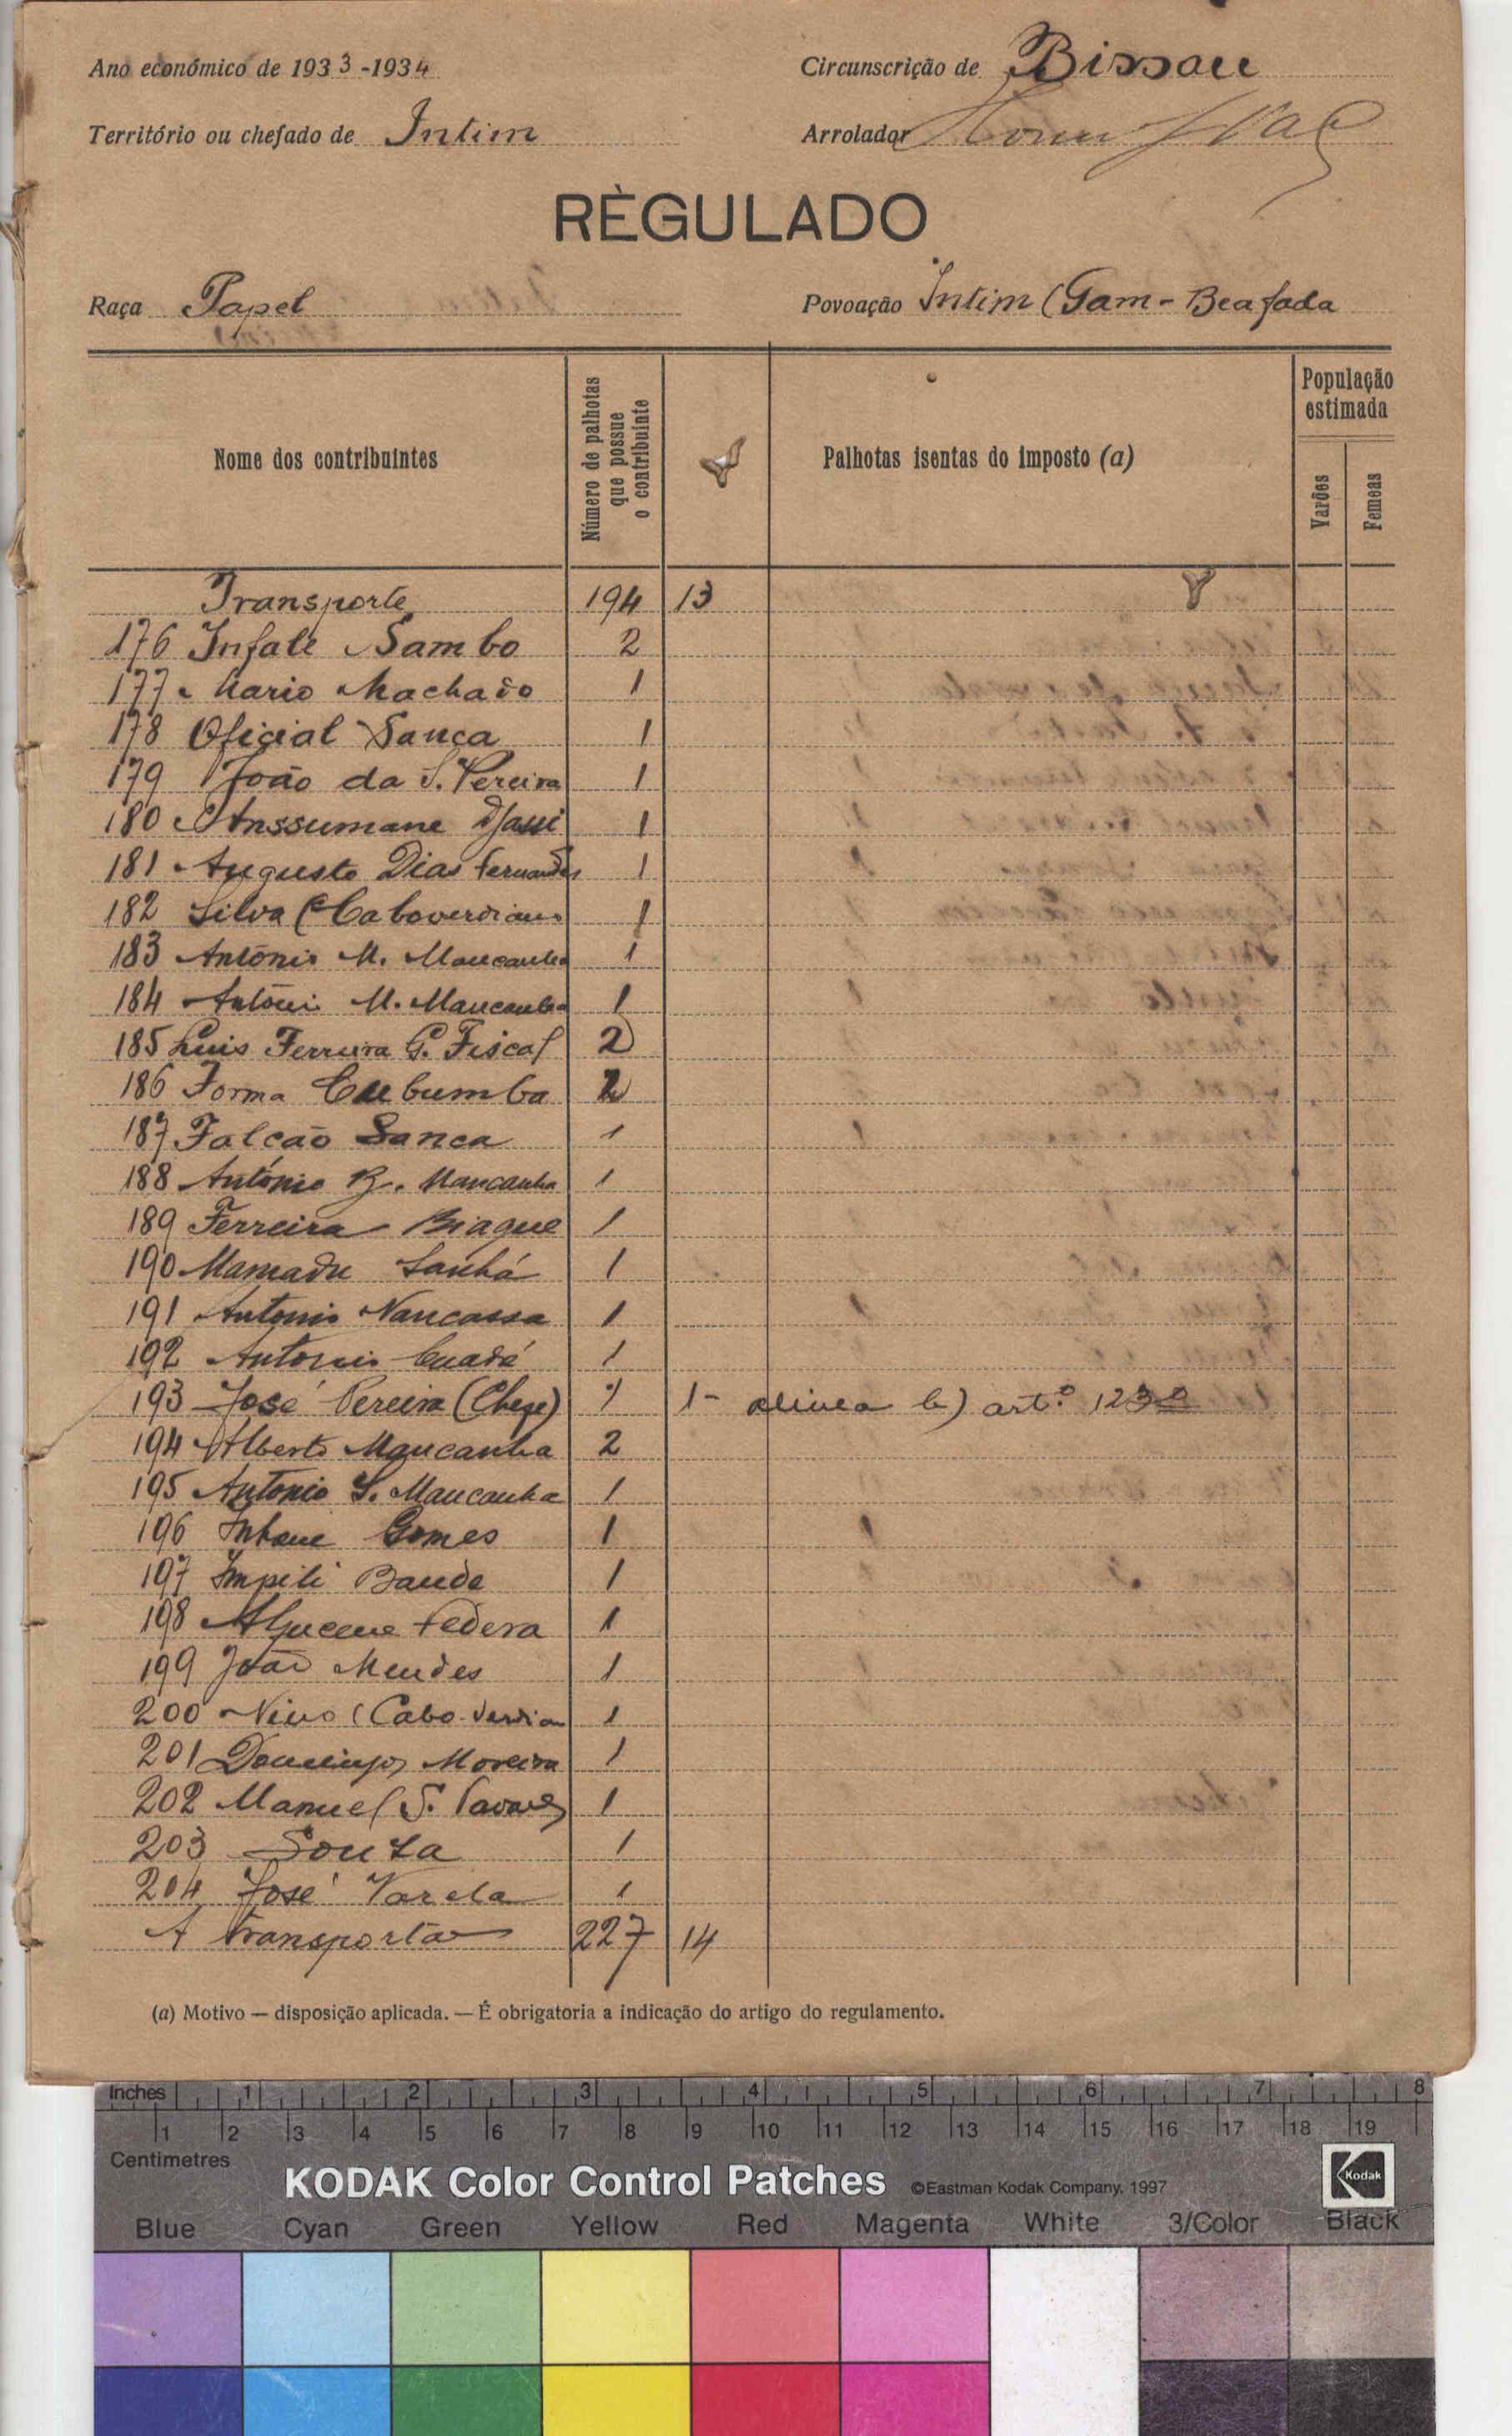 Ano económico de 1933-1934 Circunscrição de Bissau
Território ou chefado de Intim Arrolador
RÈGULADO
Raça Papel Povoação Intim (Gam-Beafada
Nome dos contribuintes Número de palhotas que possue o contribuinte Palhotas isentas do imposto (a) População estimada Varões Femeas
Transporte 194 13
176 Infale Sambo 2
177 Mario Machado 1
178 Oficial Sanca 1
179 João da S. Pereira 1
180 Anssumane Djassi 1
181 Augusto Dias Fernandes 1
182 Silva (Caboverdiano 1
183 António M. Mancanha 1
184 António M. Mancanha 1
185 Luis Ferreira G. Fiscal 2
186 Forma Cubumba 2
187 Falcão Sanca 1
188 António B. Mancanha 1
189 Ferreira Biague 1
190 Mamadu Sanhá 1
191 Antonio Nancassa 1
192 Antonio 1
193 José Pereira (Chefe) 1 1- alinea b) artº 123º
194 Alberto Mancanha 2
195 Antonio S. Mancanha 1
196 Gomes 1
197 Impili Baude 1
198 Federa 1
199 João Mendes 1
200 (Cabo-verdian 1
201 Domingos Moreira 1
202 Manuel S. Tavares 1
203 Souza 1
204 José Varela 1
A transportar 227 14
(a) Motivo — disposição aplicada. — É obrigatoria a indicação do artigo do regulamento.
Inches 1 2 3 4 5 6 7 8
1 2 3 4 5 6 7 8 9 10 11 12 13 14 15 16 17 18 19
Centimetres
KODAK Color Control Patches ©Eastman Kodak Company, 1997 Kodak
Blue Cyan Green Yellow Red Magenta White 3/Color Black